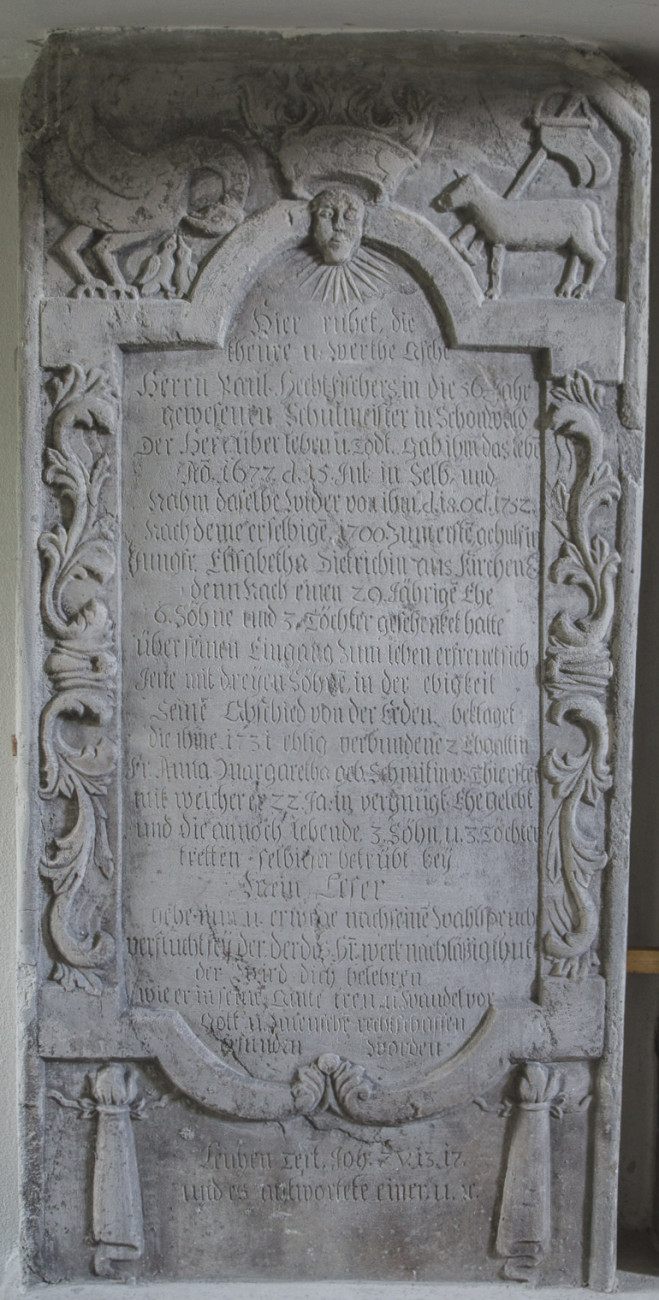 Hier ruhet, die
theure u. werthe Asche
Herrn Paul Hechtfischers, in die 36. Jahr
gewesenen Schulmeister in Schönwald
Der Herr über leben u. Todt. Gab ihm das lebē
Aō. 1677. d. 15. Jul. in Selb. und
Nahm daselbe wider von ihm. d. 18. Oct. 1752.
Nach deme er selbigē. 1700. zum erstē
Jungfr. Elisabetha Dietrichin aus Kirchen
denn Nach einen 29. Jährigē Ehe
6. Söhne und 3. Töchter geschencket hatte
über seinen Eingang zum leben erfreuet sich
Jene mit dreyen Söhnē, in der ebigkeit
Seinē Abschied von der Erden, beklaget
die ihme. 1731 ehlig verbundene 2 Ehgattin
Fr. Anna Margaretha geb. Schmitin v. Thierste
mit welcher er 22. Ja: in vergnügt. Ehe Gelebt
und die annoch lebende. 3. Söhn. u. 3. Töchter
tretten selbiger betrübt bey.
Mein Leser
gehe hin u. erwege nach seinē Wahlspruch
verflucht sey der. der des Hr. werk nachläßig thut
der Wird dich belehren
wie er in treu u. Wandel vor
Gott u. Menschē rechtschaffen
Erfunden Worden
Leichen Text. Joh: 7. V. 13. 17.
und es antwortete einer. u. ꝛc.